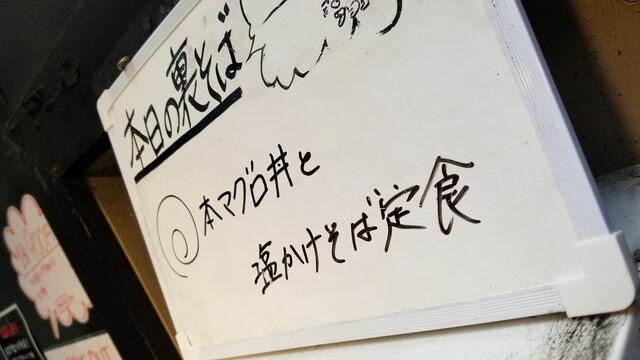 本日の裏そば
本マグロ丼と
塩かけそば定食